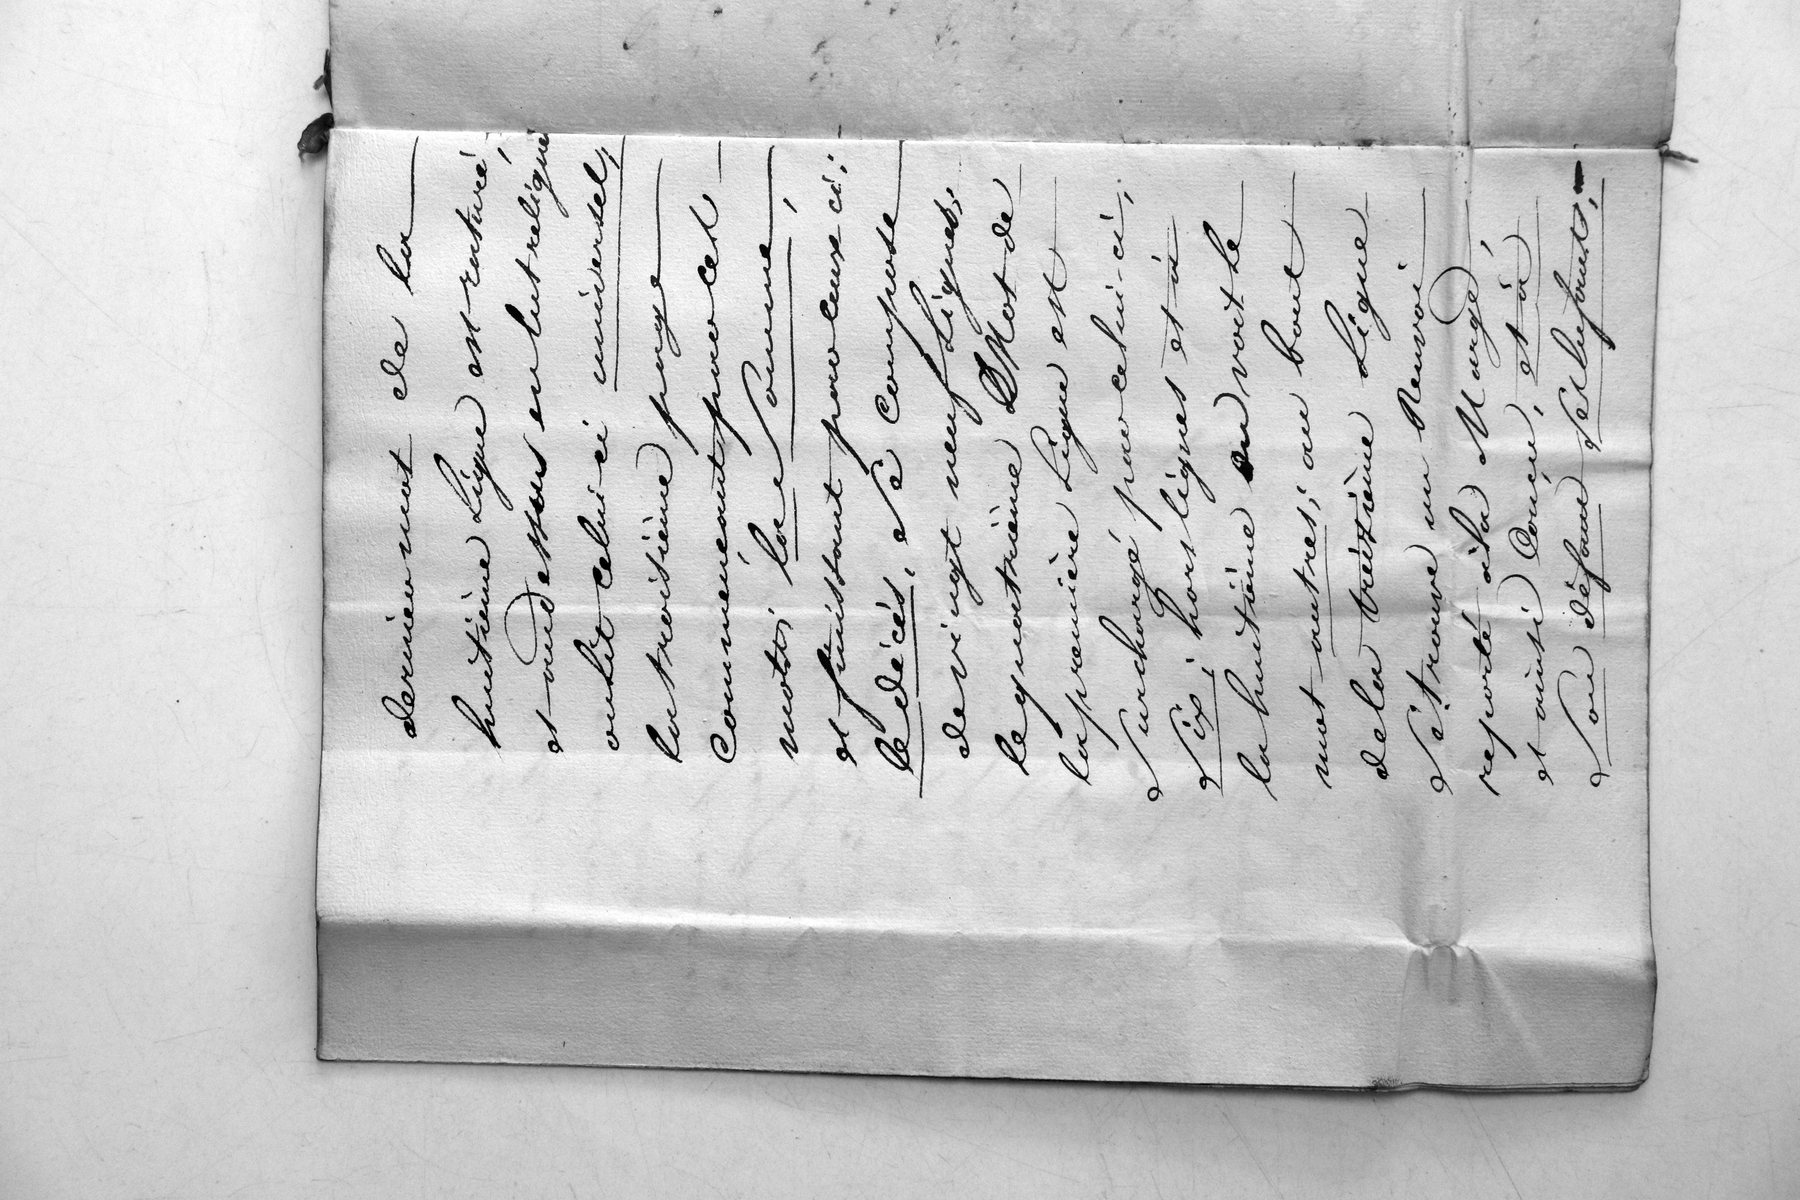 dernier mot de la
huitième Ligne est raturé,
et au dessus en lutreligne
on lit celui-ci universel;
la troisième page
commençant par cet
mots, la Somme,
et finissant par ceux ci;
le décès, Se Compose
de vingt neuf Lignes;
le quatrième Mot de
la première Ligne est
Surchargé par celui-ci;
Six; hors lignes et à
la huitième on voit le
mot autres; au bout
de la treizième Ligne
Se trouve un Renvoi
reporté à la Marge,
et ainsi Conçu, et à
Son défaut Seulefaut;